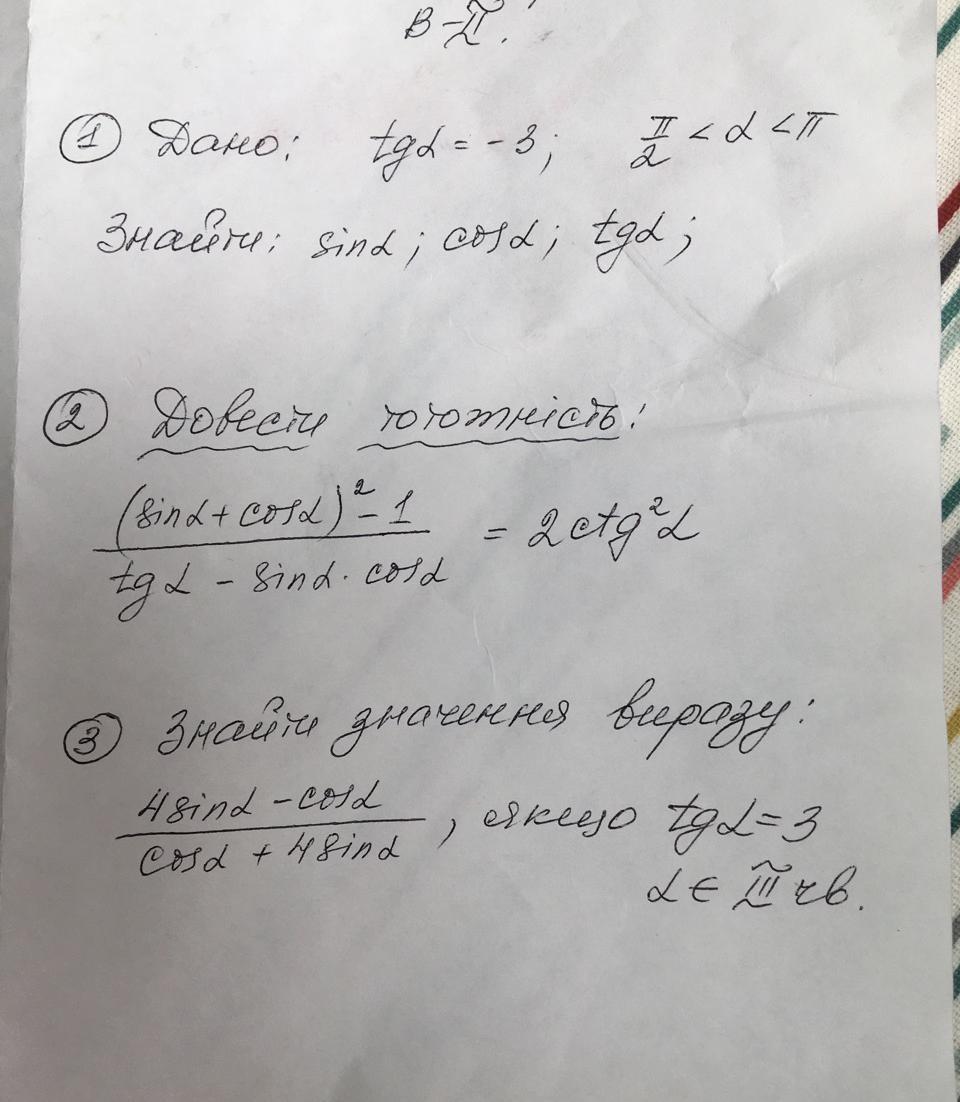 В-ІІ.
① Дано: tgα = -3; π/2 < α < π
Знайти: sinα; cosα; tgα;
② Довести тотожність:
((sinα + cosα)² - 1)/(tgα - sinα · cosα) = 2ctg²α
③ Знайти значення виразу:
(4sinα - cosα)/(cosα + 4sinα), якщо tgα = 3
α ∈ ІІІ чв.